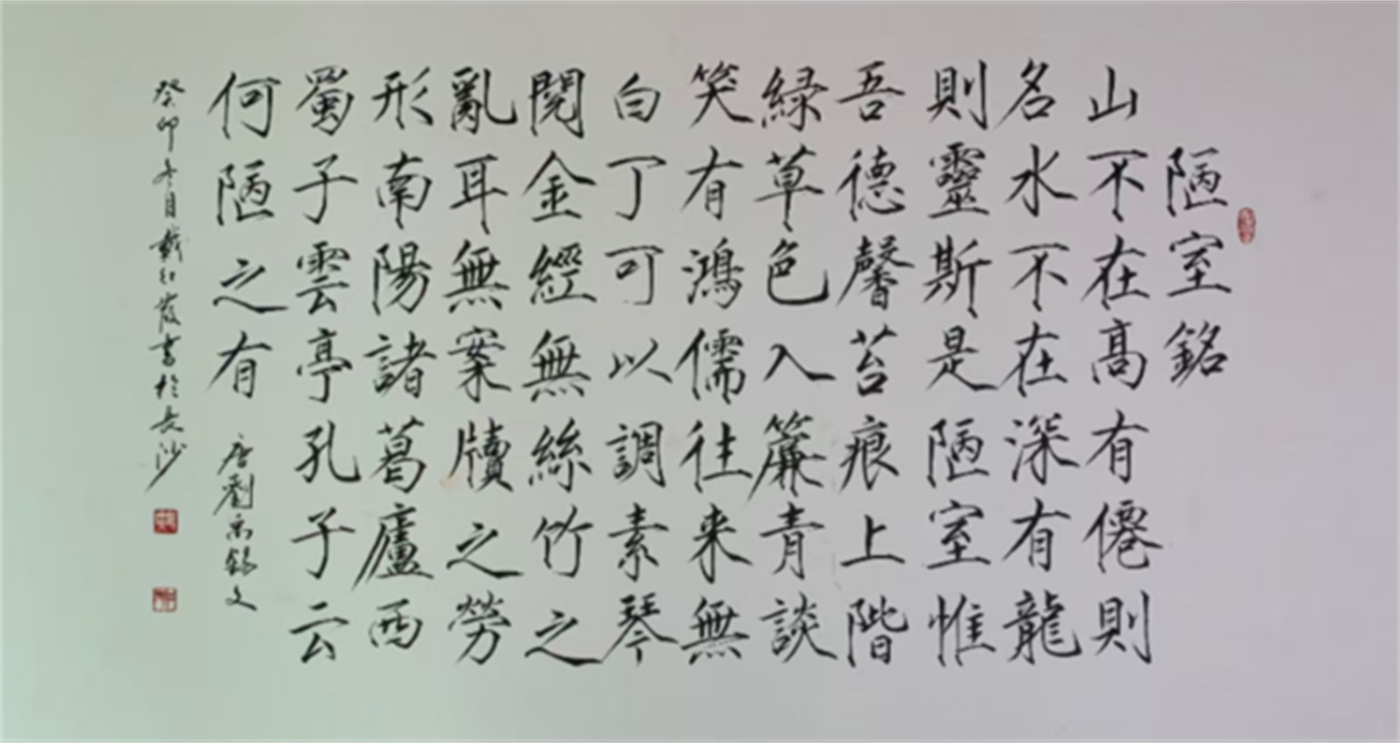 陋室銘
山不在髙有僊則
名水不在深有龍
則靈斯是陋室惟
吾德馨苔痕上階
綠草色入簾青談
笑有鴻儒往来無
白丁可以調素琴
閱金經無絲竹之
亂耳無案牘之勞
形南陽諸葛廬西
蜀子雲亭孔子云
何陋之有
唐劉禹錫文
癸卯冬月戴紅霞書於長沙